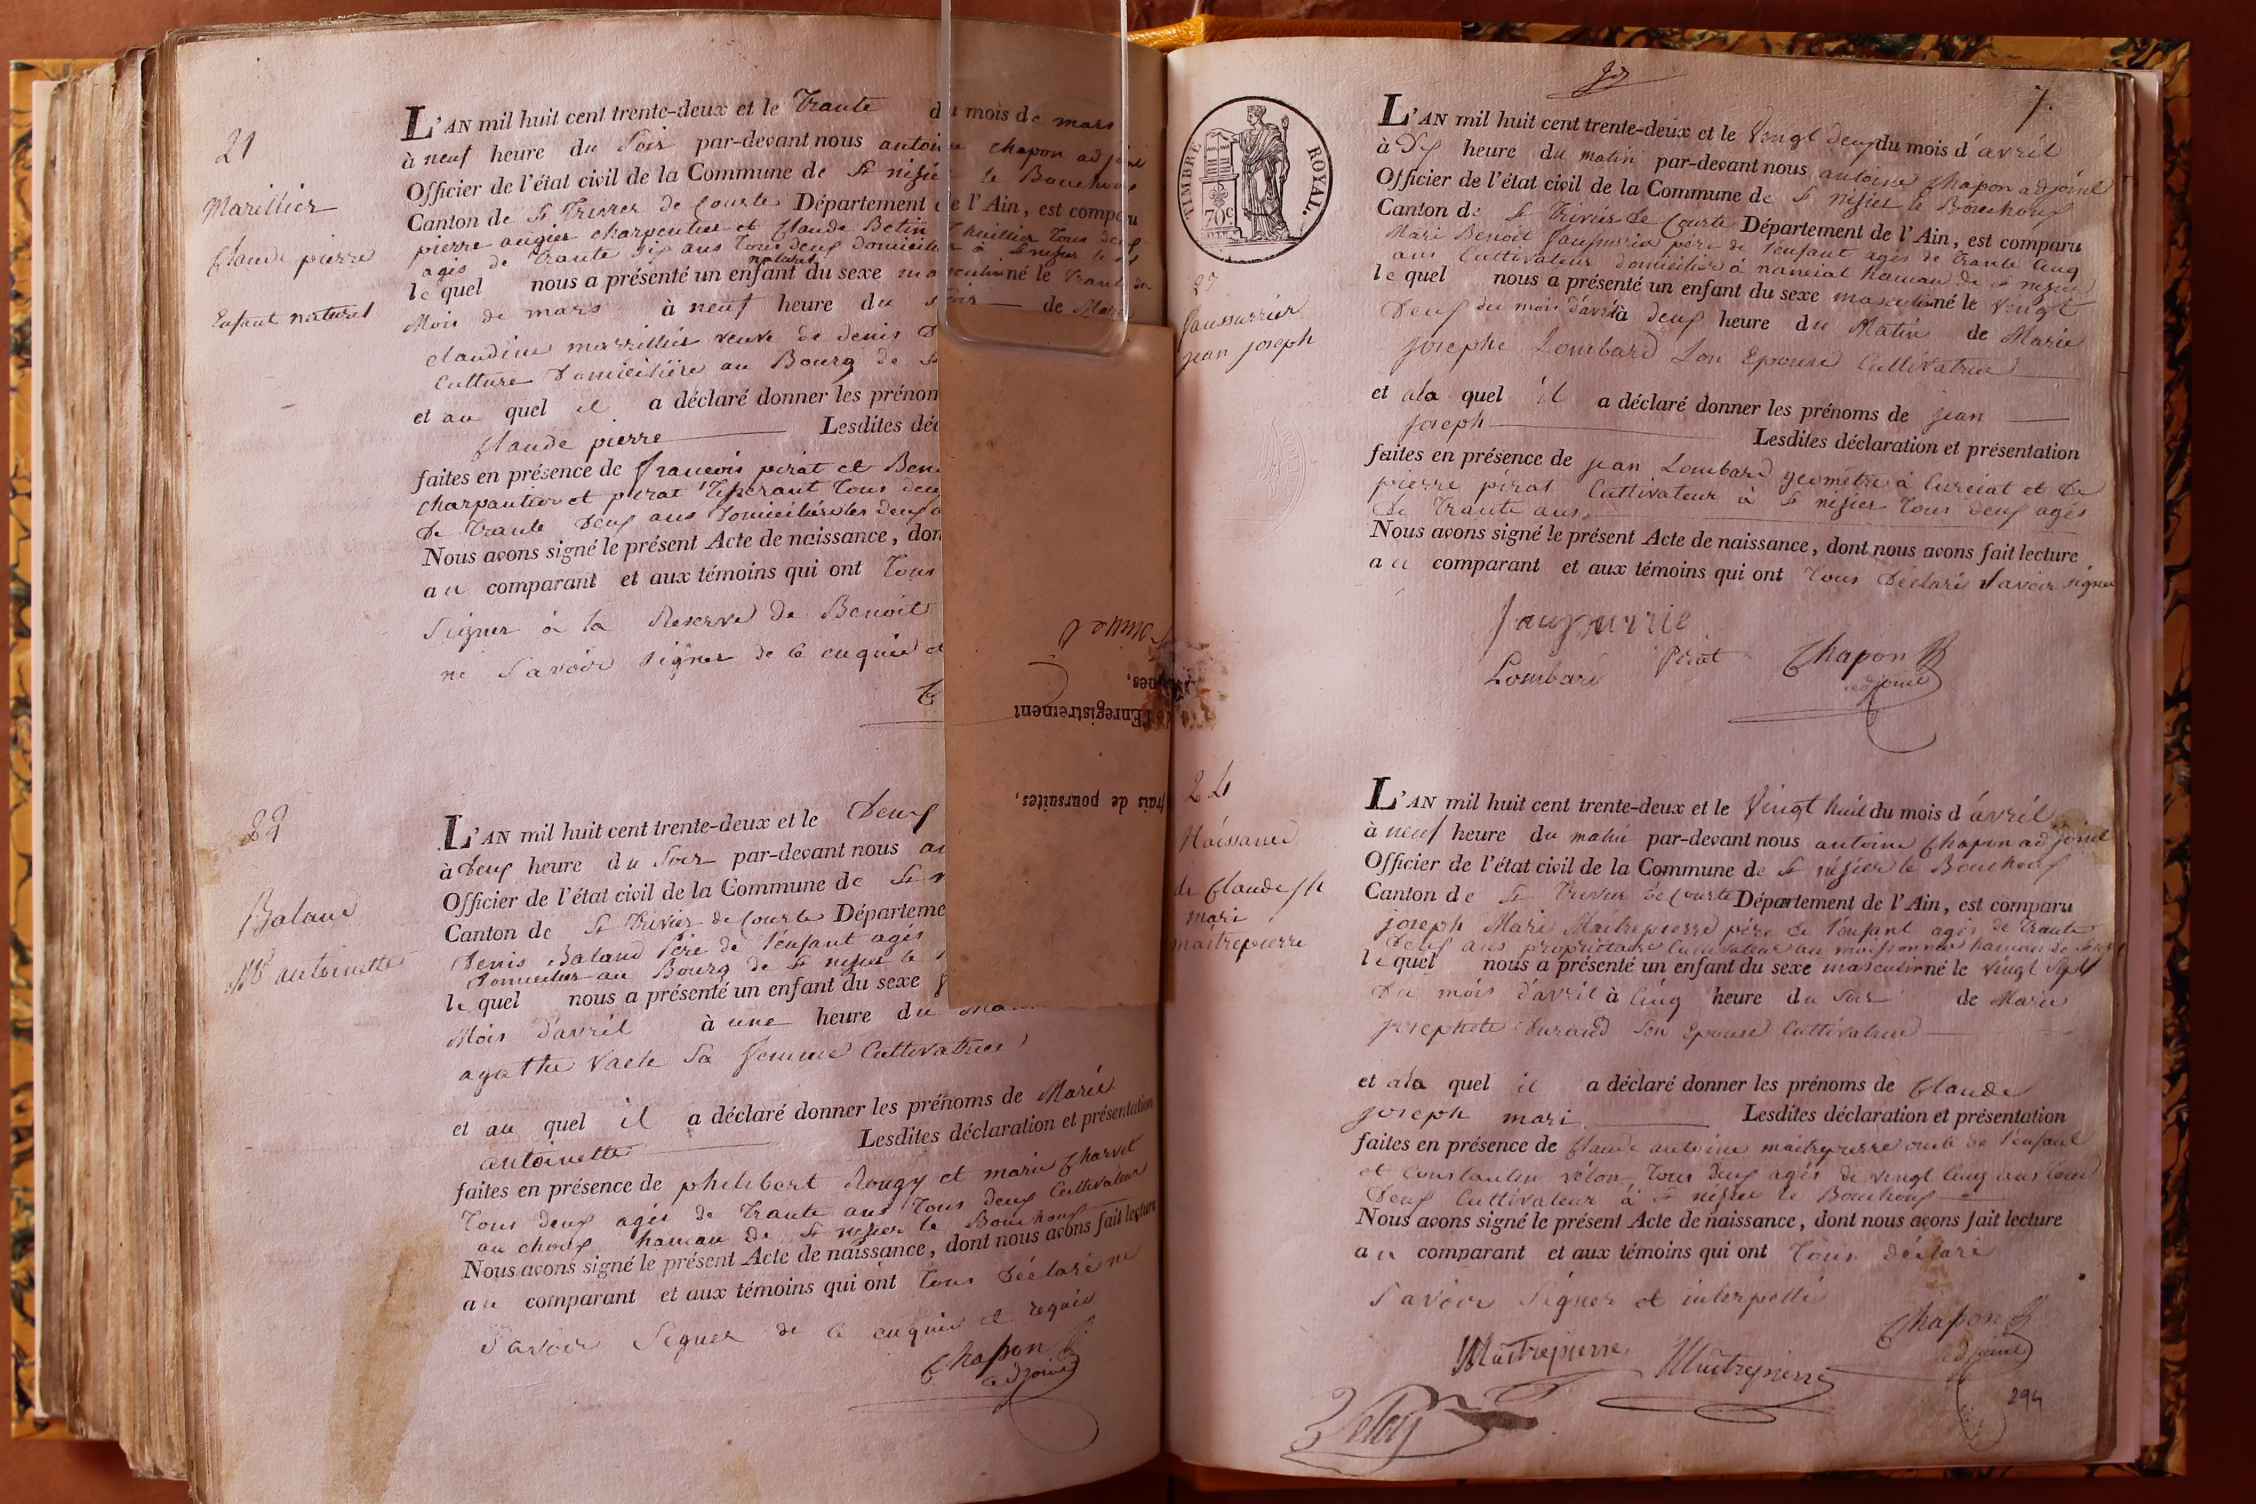 21
Marillier
Claude pierre
Enfant naturel
L'AN mil huit cent trente-deux et le Trante du mois de mars
à neuf heure du Soir par-devant nous antoine Chapon adjoint
Officier de l'état civil de la Commune de St nisier le Bouchoux
Canton de St Trivier de Courte Département de l'Ain, est comparu
pierre augier charpentier et Claude Betin Thuillier Tous deux
agés de Trante Six ans Tous deux domiciliés à St nisier le
naturel
le quel nous a présenté un enfant du sexe masculin né le Trante du
Mois de mars à neuf heure du Soir de Marie
Claudine marillier veuve de denis
Culture Domiciliée au Bourg de St
et au quel il a déclaré donner les prénom
Claude pierre Lesdites déc
faites en présence de francois pirat et Ben
Charpantier et pirat Tisserant Tous deu
De Trante Deux ans Domiciliers les deux a
Nous avons signé le présent Acte de naissance, don
au comparant et aux témoins qui ont Tous
Signer à la Reserve de Benoit
ne Savoir Signer de ce enquie et
22
Baland
Mie antoinette
L'AN mil huit cent trente-deux et le Deux
à Deux heure du Soir par-devant nous an
Officier de l'état civil de la Commune de St n
Canton de St Trivier de Courte Départeme
Denis Baland Père de l'enfant agés
Domicilier au Bourg de St nisier le
le quel nous a présenté un enfant du sexe f
Mois d'avril à une heure du ma
agathe Vacle Sa femme Cultivatrice
et au quel il a déclaré donner les prénoms de Marie
antoinette Lesdites déclaration et présentation
faites en présence de philibert Rougy et marie Charvet
Tous deux agés de Trante ans Tous deux Cultivateur
au choux hameau de St nisier le Bouchoux
Nous avons signé le présent Acte de naissance, dont nous avons fait lecture
au comparant et aux témoins qui ont Tous Déclaré ne
Savoir Signer de ce enquie et requis
Chapon
adjoint
l'Enregistrement
frais de poursuites,
7.
TIMBRE ROYAL.
70c
23
Saussurrier
jean joseph
L'AN mil huit cent trente-deux et le Vingt deux du mois d'avril
à Dix heure du matin par-devant nous antoine Chapon adjoint
Officier de l'état civil de la Commune de St nisier le Bouchoux
Canton de St Trivier de Courte Département de l'Ain, est comparu
Mari Benoit Saussurrier père de l'enfant agés de Trante Cinq
ans Cultivateur domicilié à nanciat hameau de St nisier
le quel nous a présenté un enfant du sexe masculin né le Vingt
Deux du mois d'avril à deux heure du Matin de Marie
Josephe Lombard Son Epouse Cultivatrice
et ala quel il a déclaré donner les prénoms de jean
Joseph Lesdites déclaration et présentation
faites en présence de jean Lombard geomètre à Curciat et De
pierre pirat Cultivateur à St nisier Tous deux agés
De Trante ans
Nous avons signé le présent Acte de naissance, dont nous avons fait lecture
au comparant et aux témoins qui ont Tous Déclaré Savoir Signer
Lombard Pirat Chapon
adjoint
24
Naissance
de Claude Jh
mari
maitrepierre
L'AN mil huit cent trente-deux et le Vingt huit du mois d'avril
à neuf heure du matin par-devant nous antoine Chapon adjoint
Officier de l'état civil de la Commune de St nisier le Bouchoux
Canton de St Trivier de Courte Département de l'Ain, est comparu
joseph Mari Maitrepierre père de l'enfant agés de Trante
Deux ans propriétaire Cultivateur au hameau de St
le quel nous a présenté un enfant du sexe masculin né le Vingt Sept
Du mois d'avril à Cinq heure du Soir de Marie
Josephete Durand Son Epouse Cultivateur
et ala quel il a déclaré donner les prénoms de Claude
Joseph mari Lesdites déclaration et présentation
faites en présence de Claude antoine maitrepierre oncle de l'enfant
et Constantin Velon Tous deux agés de vingt Cinq ans tous
Deux Cultivateur à St nisier le Bouchoux
Nous avons signé le présent Acte de naissance, dont nous avons fait lecture
au comparant et aux témoins qui ont Tous déclaré
Savoir Signer et interpellé
Maitrepierre Maitrepierre Chapon
adjoint
294